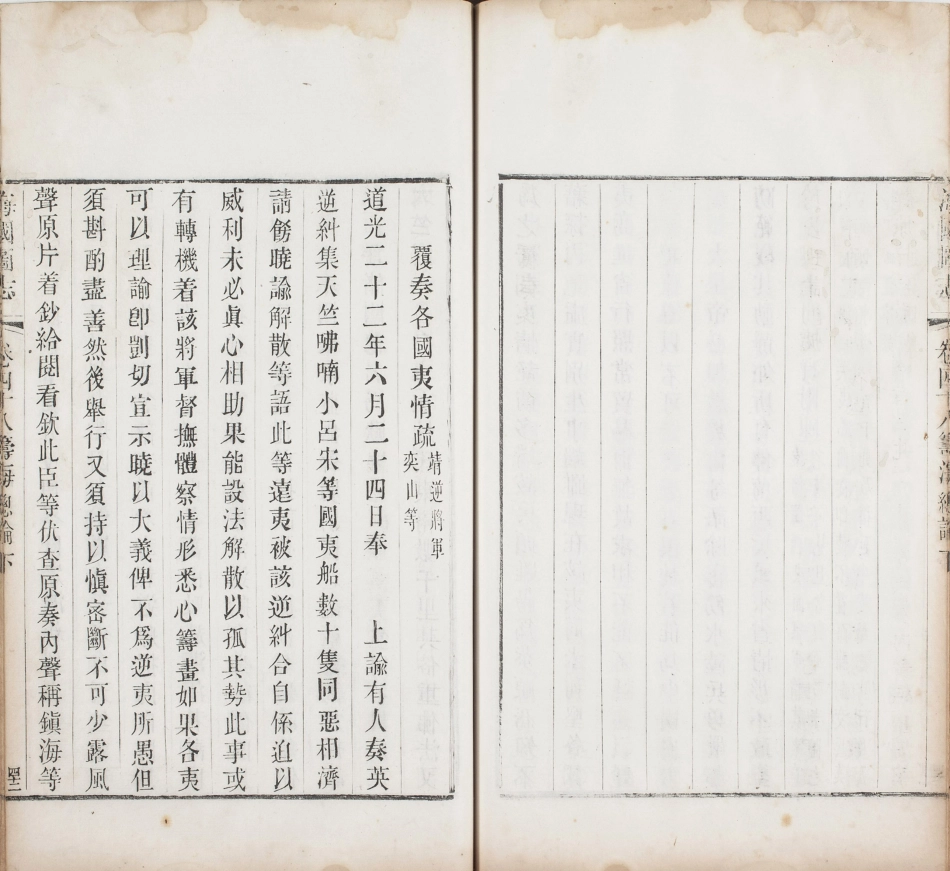 海國圖志
卷四十八籌海總論下
覆奏各國夷情疏 靖逆將軍
奕山等
道光二十二年六月二十四日奉 上諭有人奏英
逆糾集天竺咈喃小呂宋等國夷船數十隻同惡相濟
請飭曉諭解散等語此等遠夷被該逆糾合自係迫以
威利未必眞心相助果能設法解散以孤其勢此事或
有轉機着該將軍督撫體察情形悉心籌畫如果各夷
可以理諭卽剴切宣示曉以大義俾不爲逆夷所愚但
須斟酌盡善然後舉行又須持以愼密斷不可少露風
聲原片着鈔給閱看欽此臣等伏查原奏內聲稱鎭海等
海國圖志
卷四十八籌海總論下